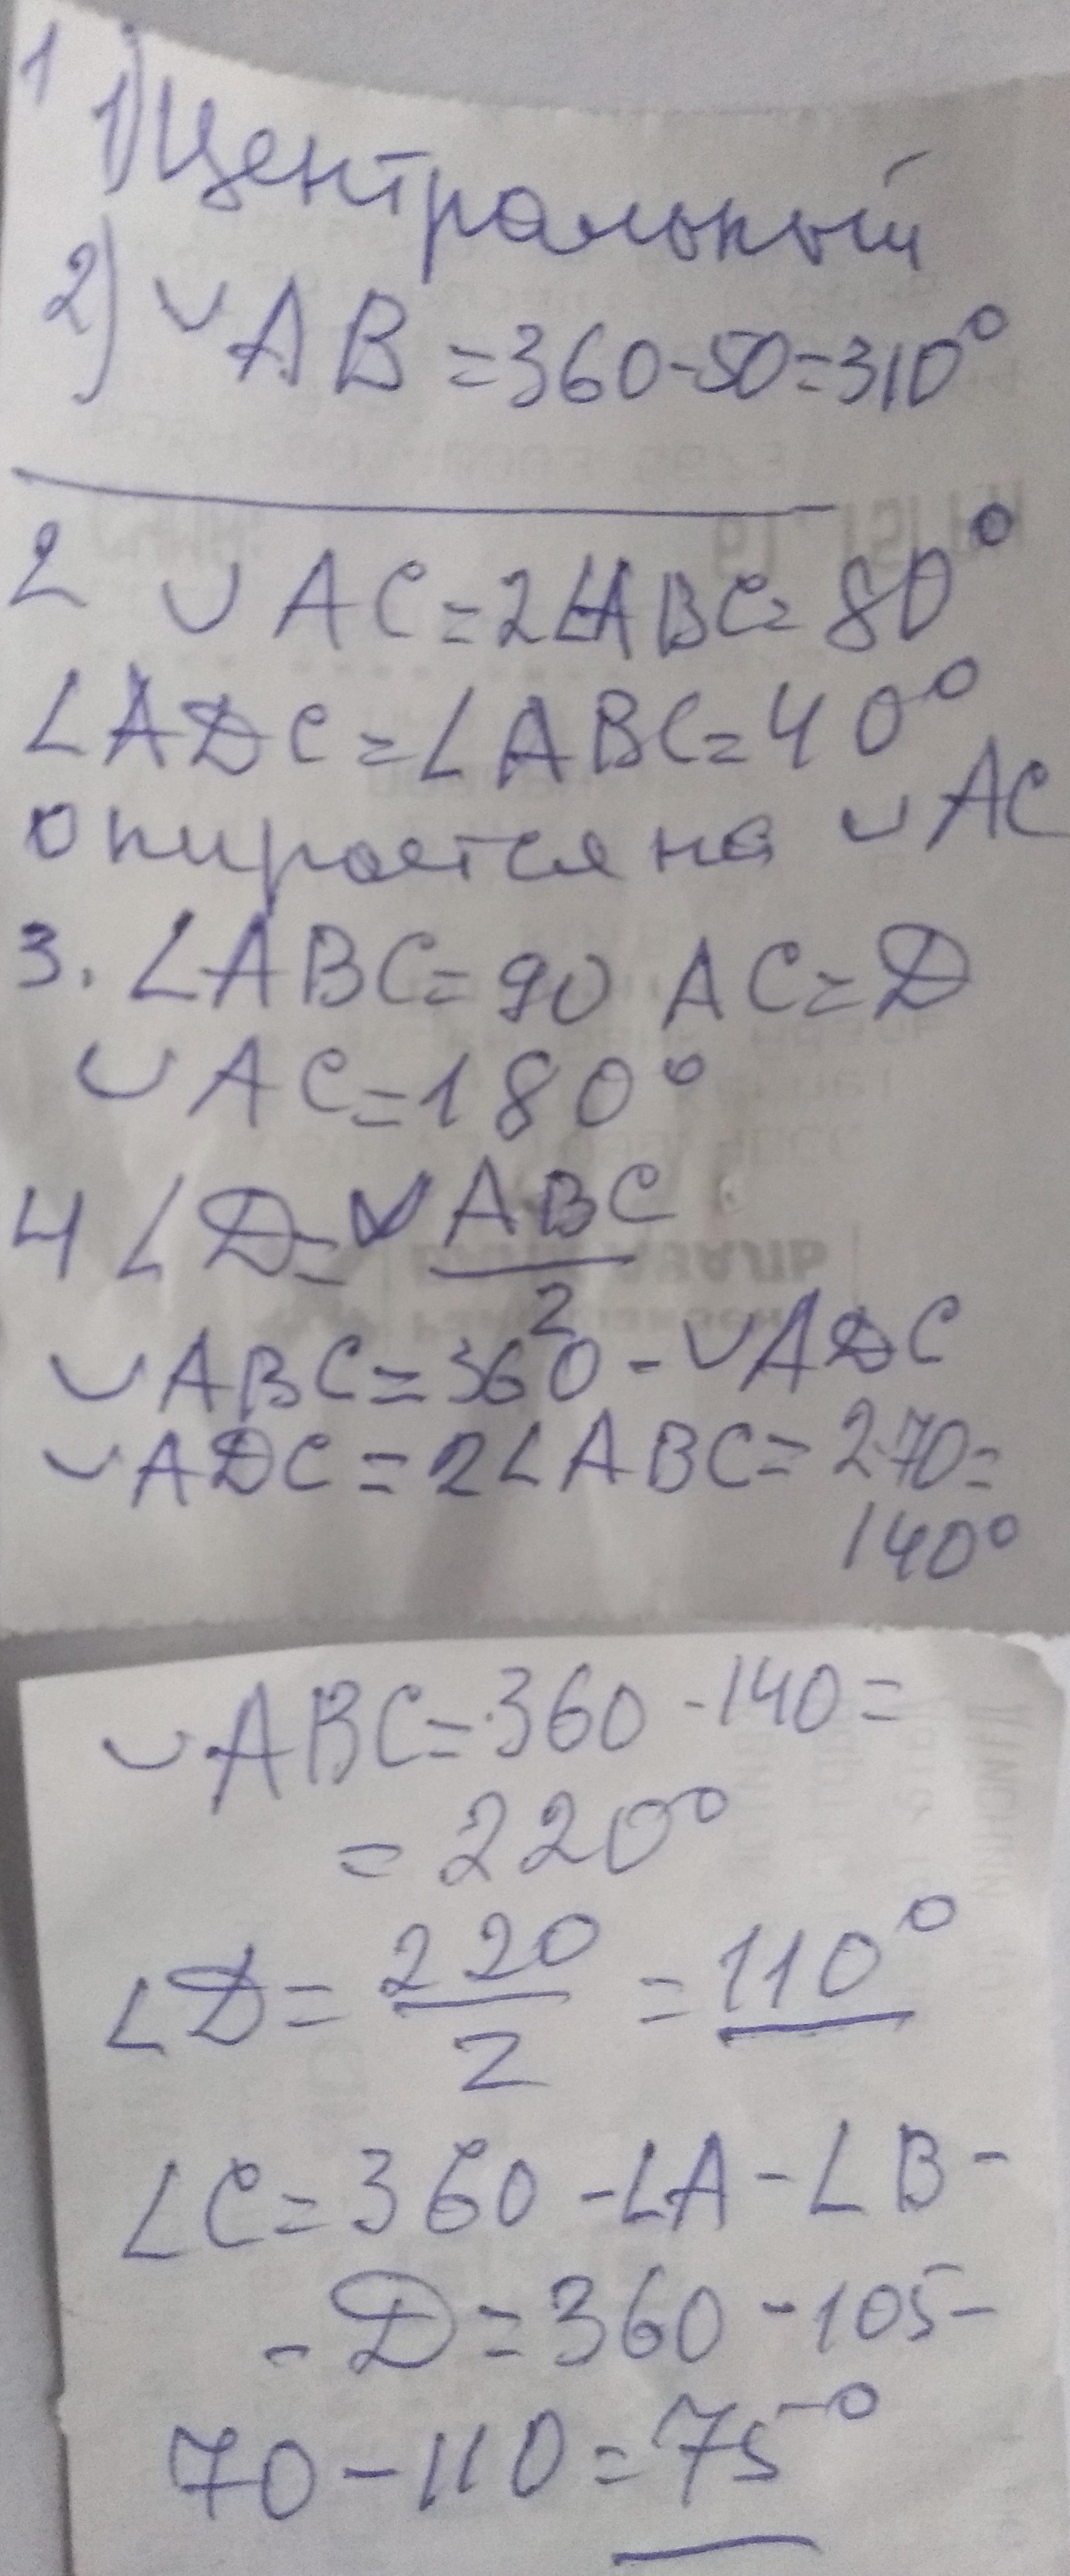 1
1) Центральный
2) ◡AB = 360-50=310°
2 ◡AC=2∠ABC= 80°
∠ADC=∠ABC=40°
опирается на ◡AC
3. ∠ABC=90 AC=D
◡AC=180°
4 ∠D=◡ABC/2
◡ABC=360-◡ADC
◡ADC=2∠ABC=2·70=
140°
◡ABC=360-140=
=220°
∠D=220/2=110°
∠C=360-∠A-∠B-
-D=360-105-
70-110=75°